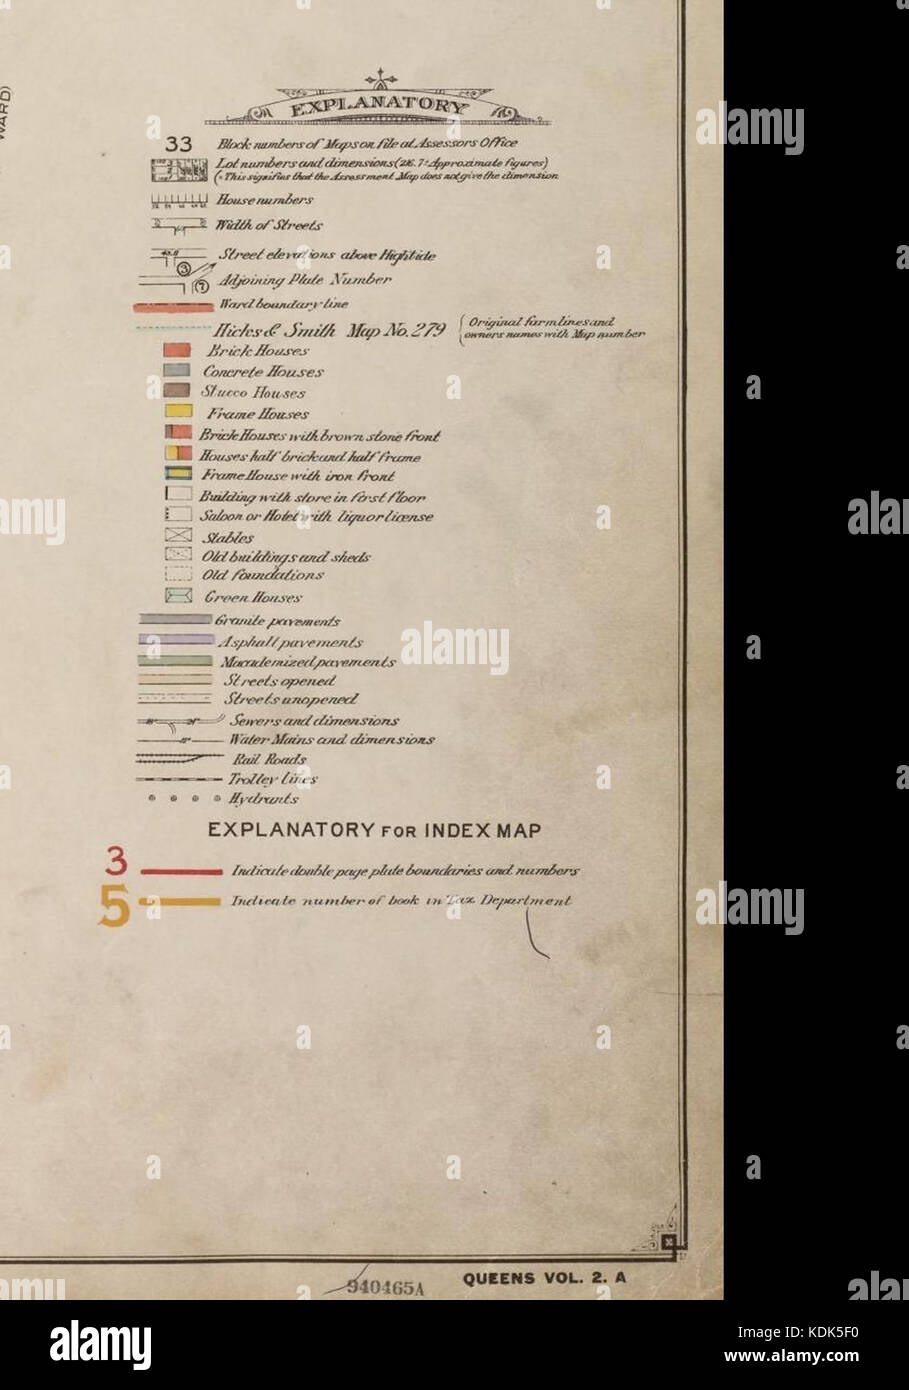 WARD)
EXPLANATORY
33 Block numbers of Maps on file at Assessors Office
Lot numbers and dimensions (216.7+ Approximate figures)
(+ This signifies that the Assessment Map does not give the dimension
House numbers
Width of Streets
Street elevations above Hightide
3
Adjoining Plate Number
7
Ward boundary line
Hicks & Smith Map No. 279 (Original farm lines and
owners names with Map number
Brick Houses
Concrete Houses
Stucco Houses
Frame Houses
Brick Houses with brown stone front
Houses half brick and half frame
Frame House with iron front
Building with store in first floor
Saloon or Hotel with liquor license
Stables
Old buildings and sheds
Old foundations
Green Houses
Granite pavements
Asphalt pavements
Macademized pavements
Streets opened
Streets unopened
Sewers and dimensions
Water Mains and dimensions
Rail Roads
Trolley lines
Hydrants
EXPLANATORY FOR INDEX MAP
3 Indicate double page plate boundaries and numbers
5 Indicate number of book in Tax Department
940465A
QUEENS VOL. 2. A
alamy
alamy
alamy
alamy
a alamy
Image ID: KDK5F0
www.alamy.com